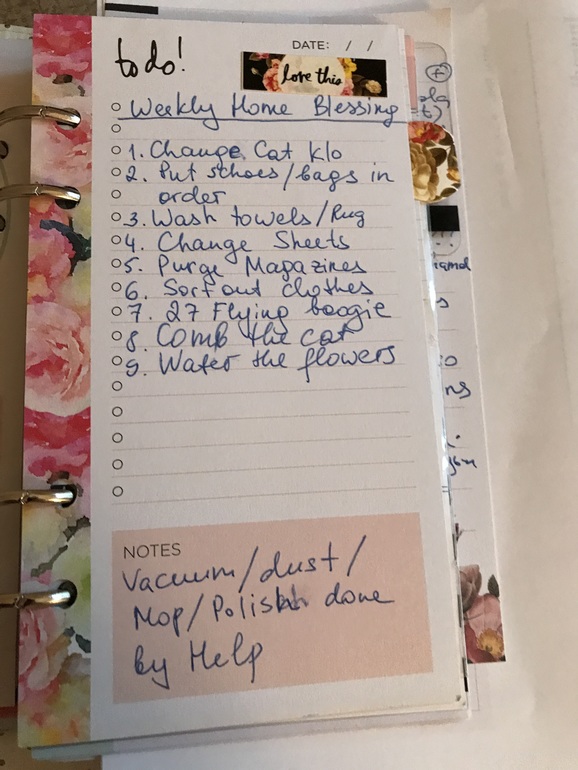 to do!
DATE: / /
love this
Weekly Home Blessing
1. Change Cat Klo
2. Put schoes/bags in
order
3. Wash towels/Rug
4. Change Sheets
5. Purge Magazines
6. Sort out clothes
7. 27 Flying boogie
8. Comb the cat
9. Water the flowers
NOTES
Vacuum/dust/
Mop/Polish done
by Help